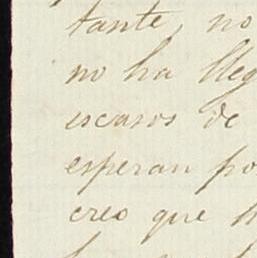 tante, no
no ha lleg
escasos de
esperan po
creo que h